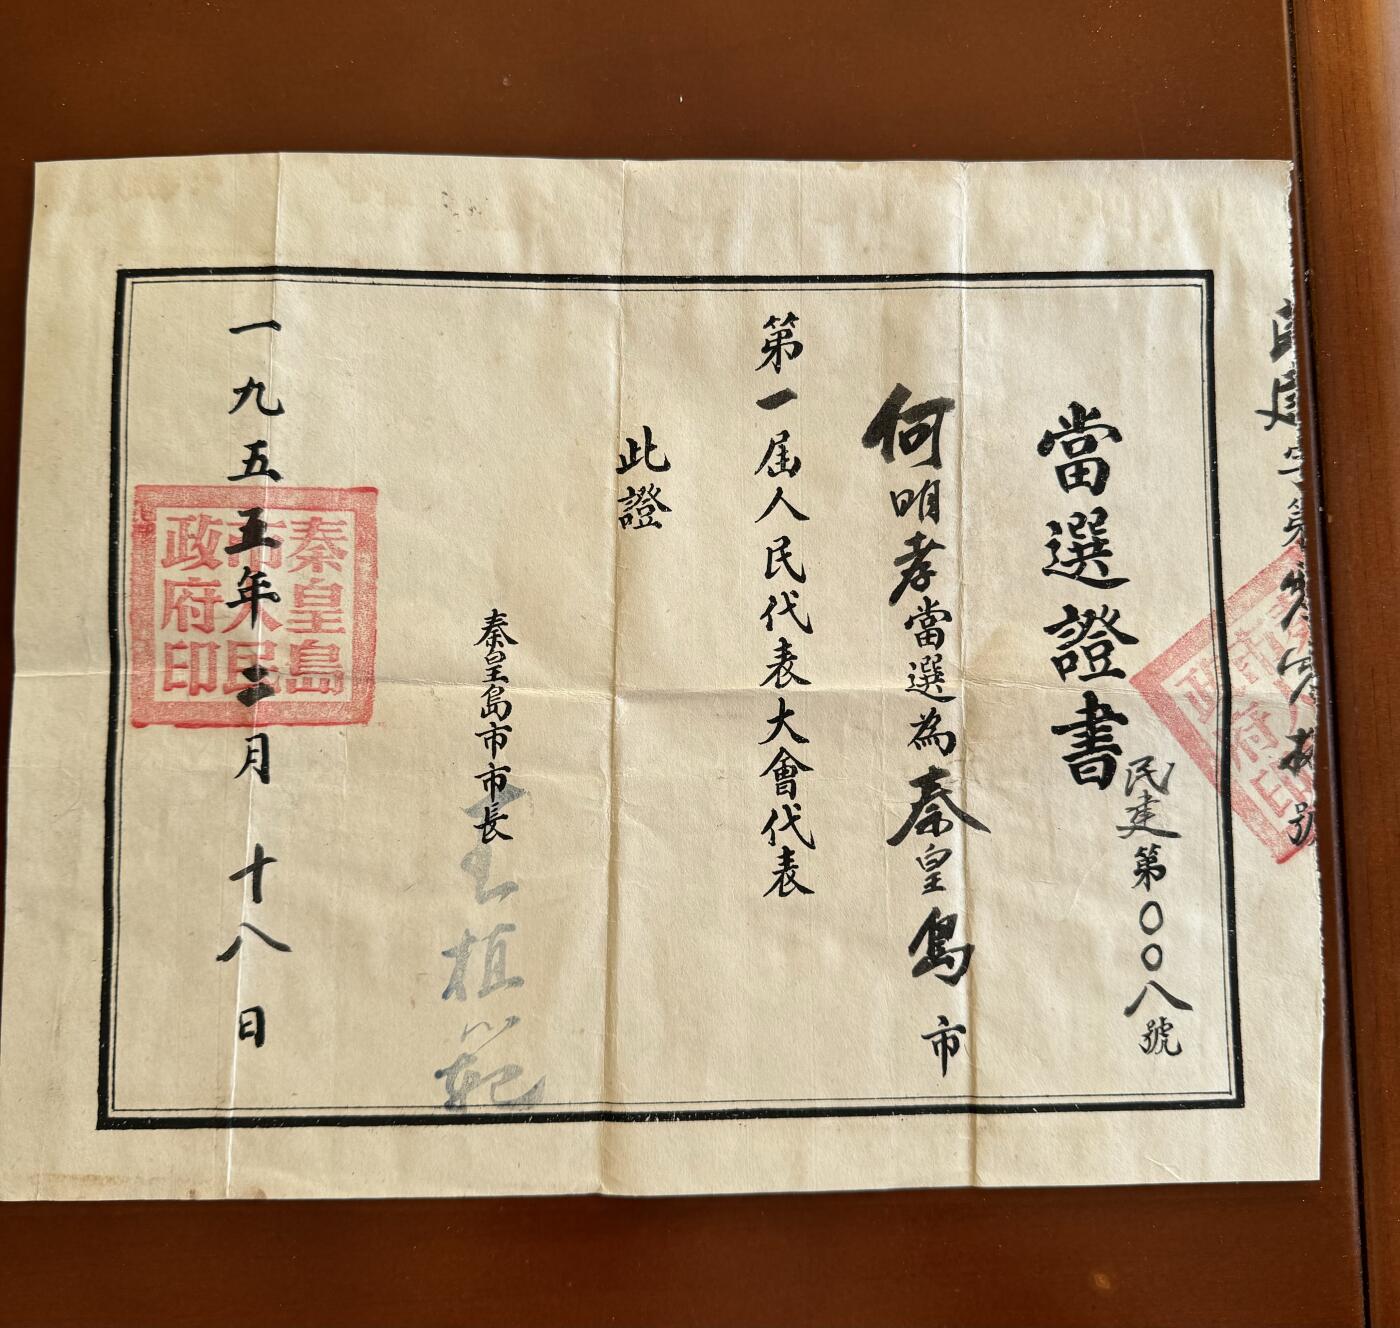 當選證書
民建第〇〇八號
何明孝當選為秦皇島市
第一屆人民代表大會代表
此證
秦皇島市市長
王植範
一九五五年二月十八日
秦皇島市人民政府印